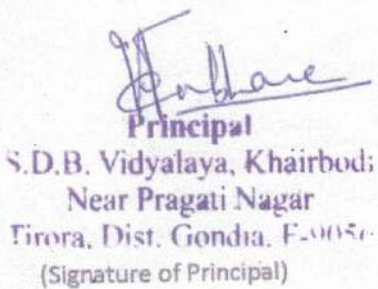 Principal
S.D.B. Vidyalaya, Khairbodi
Near Pragati Nagar
Tirora, Dist. Gondia.
(Signature of Principal)